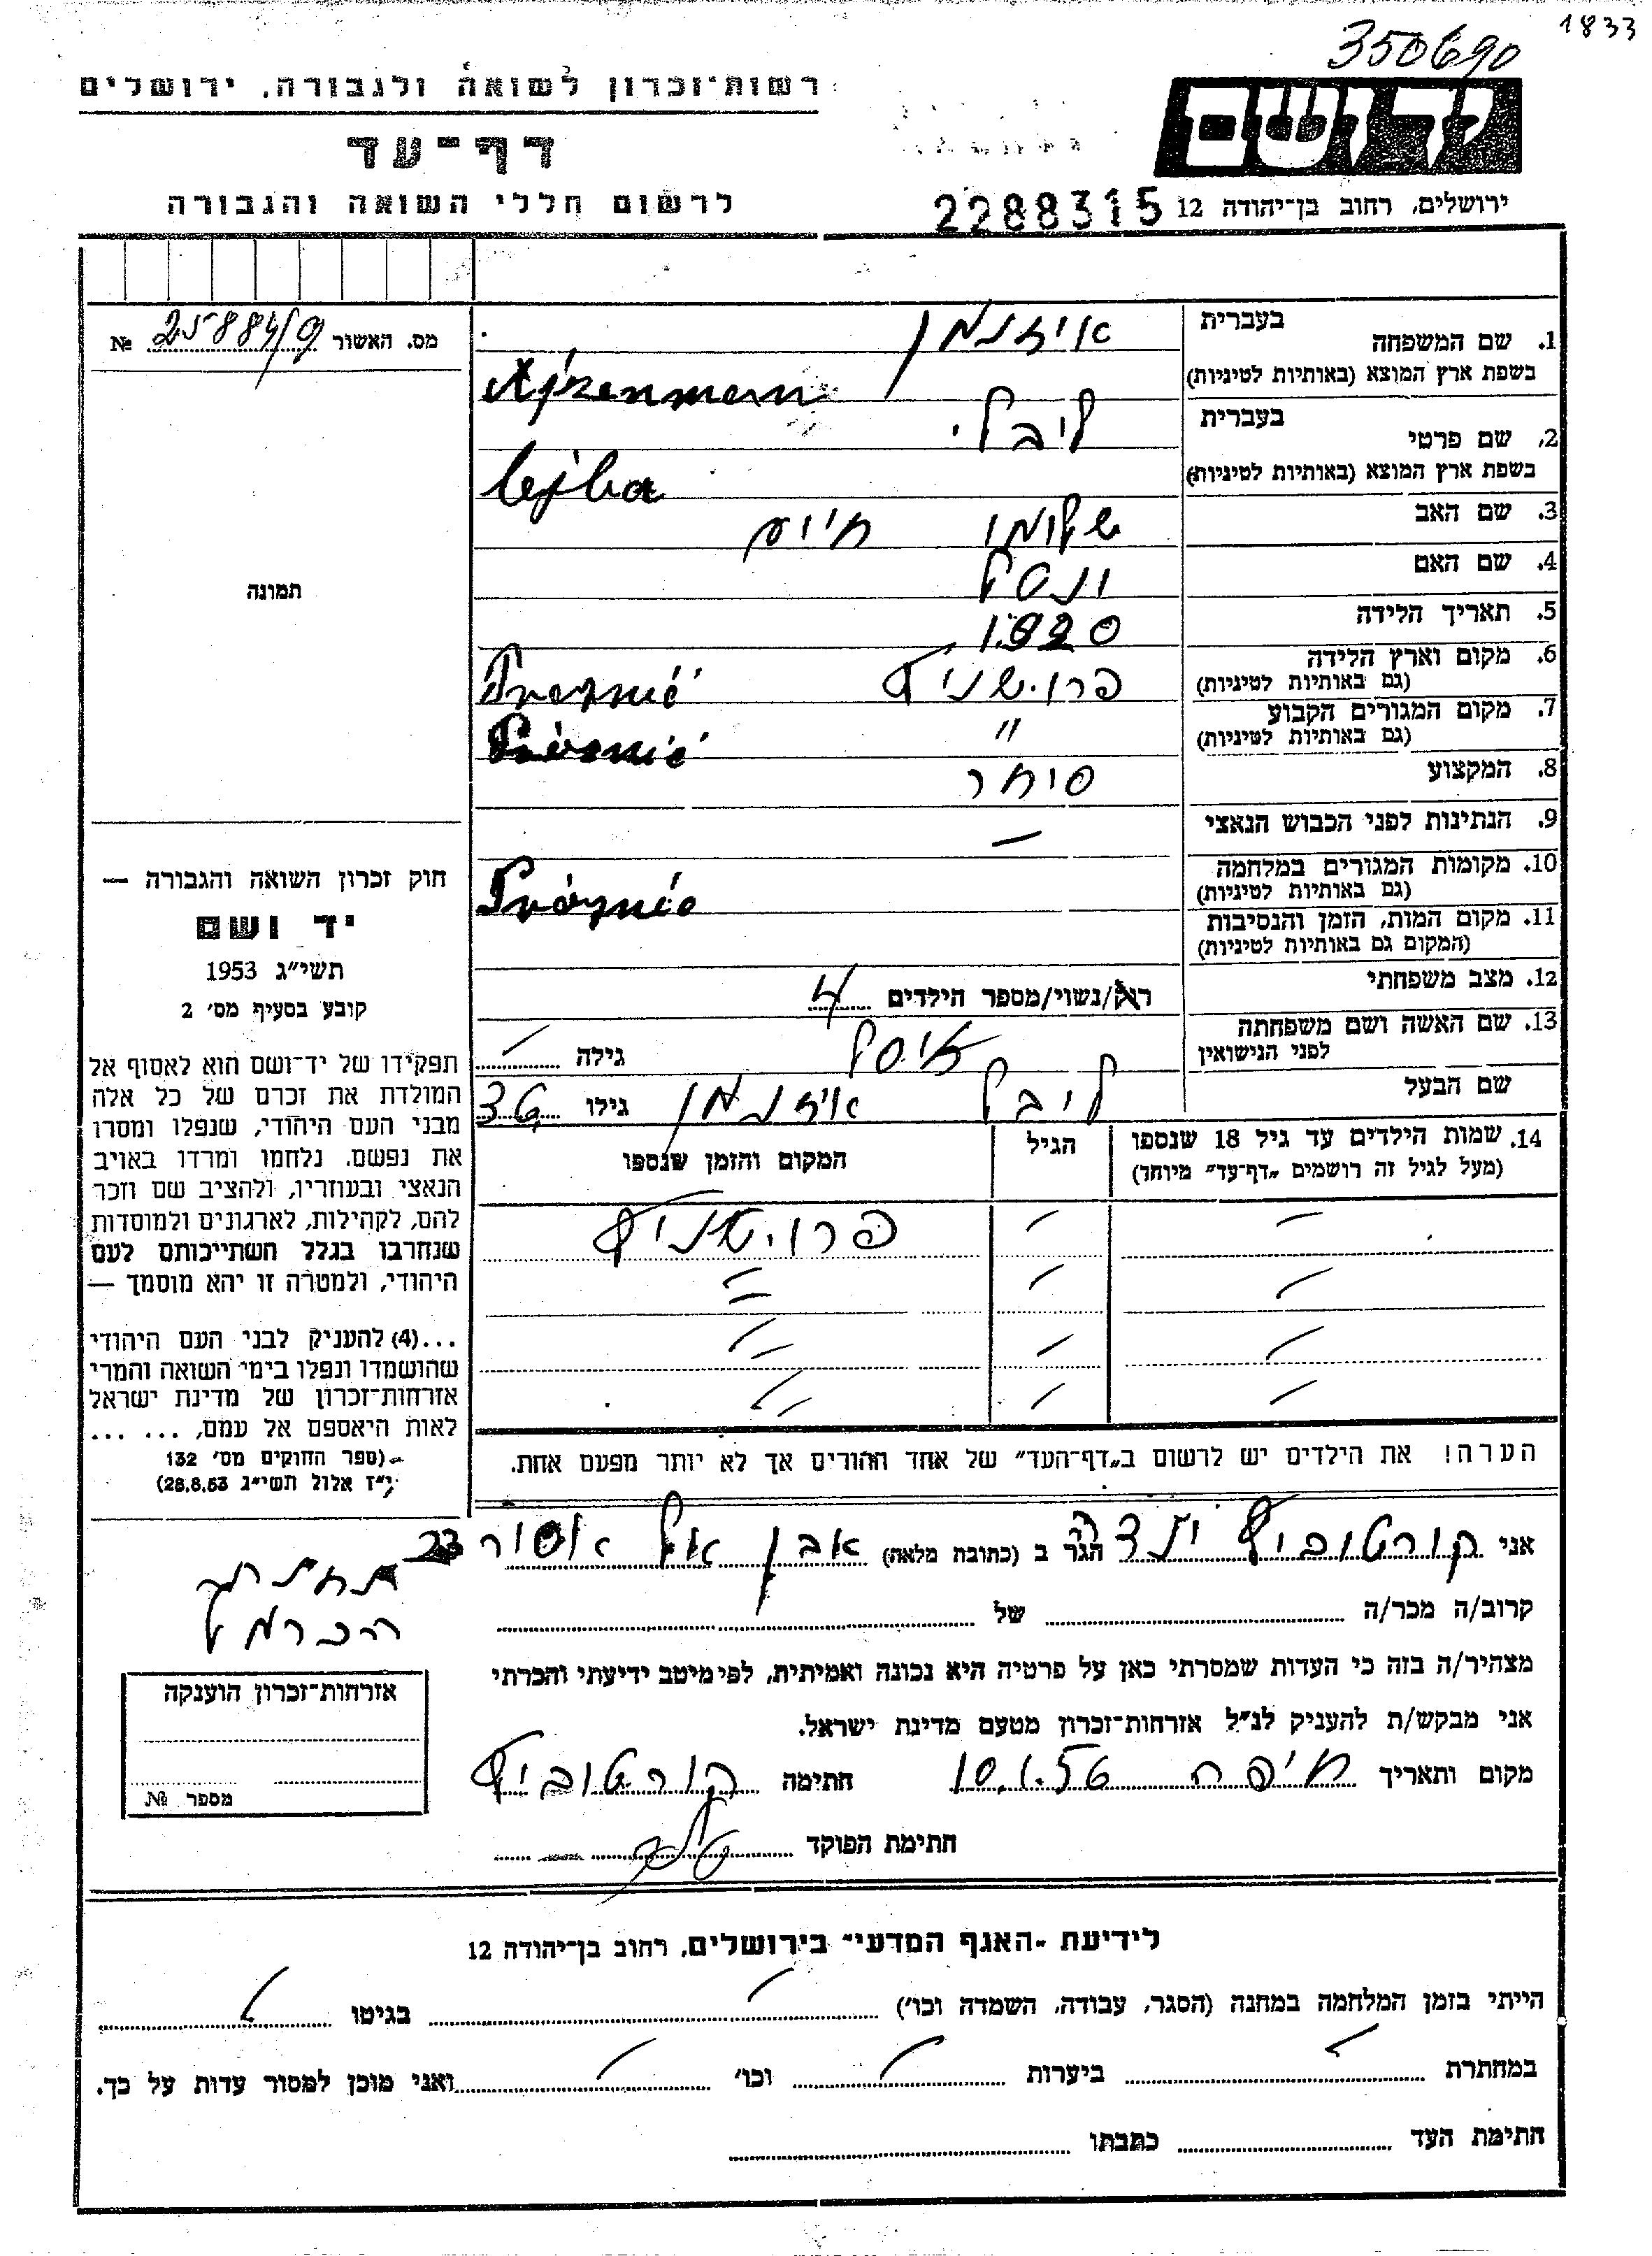 1833
350690
ידושם
רשות־זכרון לשואה ולגבורה, ירושלים
דף־עד
לרשום חללי השואה והגבורה
ירושלים, רחוב בן־יהודה 12
2288315
מס. האשור 25884/9 №
1. שם המשפחה בעברית איזנמן
בשפת ארץ המוצא (באותיות לטיניות) Ajzenman
2. שם פרטי בעברית ליבל
בשפת ארץ המוצא (באותיות לטיניות) Lejba
3. שם האב שלומו חיים
4. שם האם
5. תאריך הלידה
6. מקום וארץ הלידה
(גם באותיות לטיניות)
7. מקום המגורים הקבוע "
(גם באותיות לטיניות)
8. המקצוע סוחר
9. הנתינות לפני הכבוש הנאצי —
10. מקומות המגורים במלחמה
(גם באותיות לטיניות)
11. מקום המות, הזמן והנסיבות
(המקום גם באותיות לטיניות)
12. מצב משפחתי רוק/נשוי/מספר הילדים 4
13. שם האשה ושם משפחתה
לפני הנישואין
גילה
שם הבעל ליבל איזנמן גילו 36
14. שמות הילדים עד גיל 18 שנספו
(מעל לגיל זה רושמים „דף־עד” מיוחד)
הגיל
המקום והזמן שנספו
הערה! את הילדים יש לרשום ב„דף־העד” של אחד ההורים אך לא יותר מפעם אחת.
תמונה
חוק זכרון השואה והגבורה —
יד ושם
תשי״ג 1953
קובע בסעיף מס׳ 2
תפקידו של יד־ושם הוא לאסוף אל
המולדת את זכרם של כל אלה
מבני העם היהודי, שנפלו ומסרו
את נפשם, נלחמו ומרדו באויב
הנאצי ובעוזריו, ולהציב שם וזכר
להם, לקהילות, לארגונים ולמוסדות
שנחרבו בגלל השתייכותם לעם
היהודי, ולמטרה זו יהא מוסמך —
...(4) להעניק לבני העם היהודי
שהושמדו ונפלו בימי השואה והמרי
אזרחות־זכרון של מדינת ישראל
לאות היאספם אל עמם, ... ...
(ספר החוקים מס׳ 132
י״ז אלול תשי״ג 28.8.53)
אני קורטוביץ הגר ב (כתובת מלאה) אבן 23
הכרמל
קרוב/ה מכר/ה של
מצהיר/ה בזה כי העדות שמסרתי כאן על פרטיה היא נכונה ואמיתית, לפי מיטב ידיעתי והכרתי
אני מבקש/ת להעניק לנ״ל אזרחות־זכרון מטעם מדינת ישראל.
מקום ותאריך חיפה 10.1.56 חתימה קורטוביץ
חתימת הפוקד
אזרחות־זכרון הוענקה
מספר №
לידיעת „האגף המדעי” בירושלים, רחוב בן־יהודה 12
הייתי בזמן המלחמה במחנה (הסגר, עבודה, השמדה וכו׳) בגיטו
במחתרת ביערות וכו׳ ואני מוכן למסור עדות על כך.
חתימת העד כתבתו